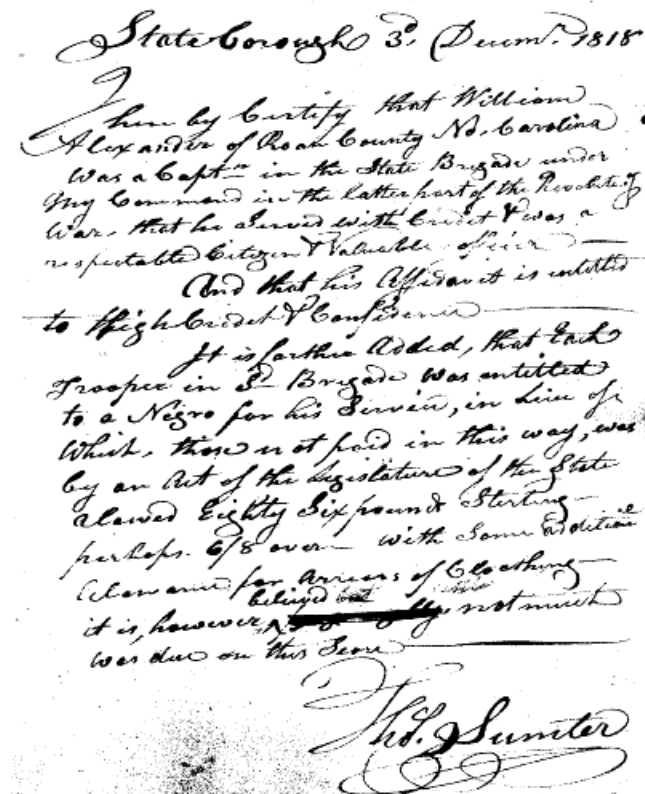 Stateborough 3d. Decemr. 1818
I here by Certify that William
Alexander of Roan County No. Carolina
was a Captn in the State Brigade under
My Command in the latter part of the
War. that he Served with Credit & was a
respectable Citizen & Valuable officer
And that his Affidavit is intitled
to high Credit & Confidence
It is farther Added, that Each
Trooper in Sd. Brigade was entitled
to a Negro for his Service, in Lieu of
Which, those not paid in this way, was
by an Act of the Legislature of the State
alowed Eighty Six pounds Sterling
perhaps. 6/8 over with Some addition
Alowance for Arrears of Cloathing
believed
it is, however, not much
was due on this Score
Thos. Sumter